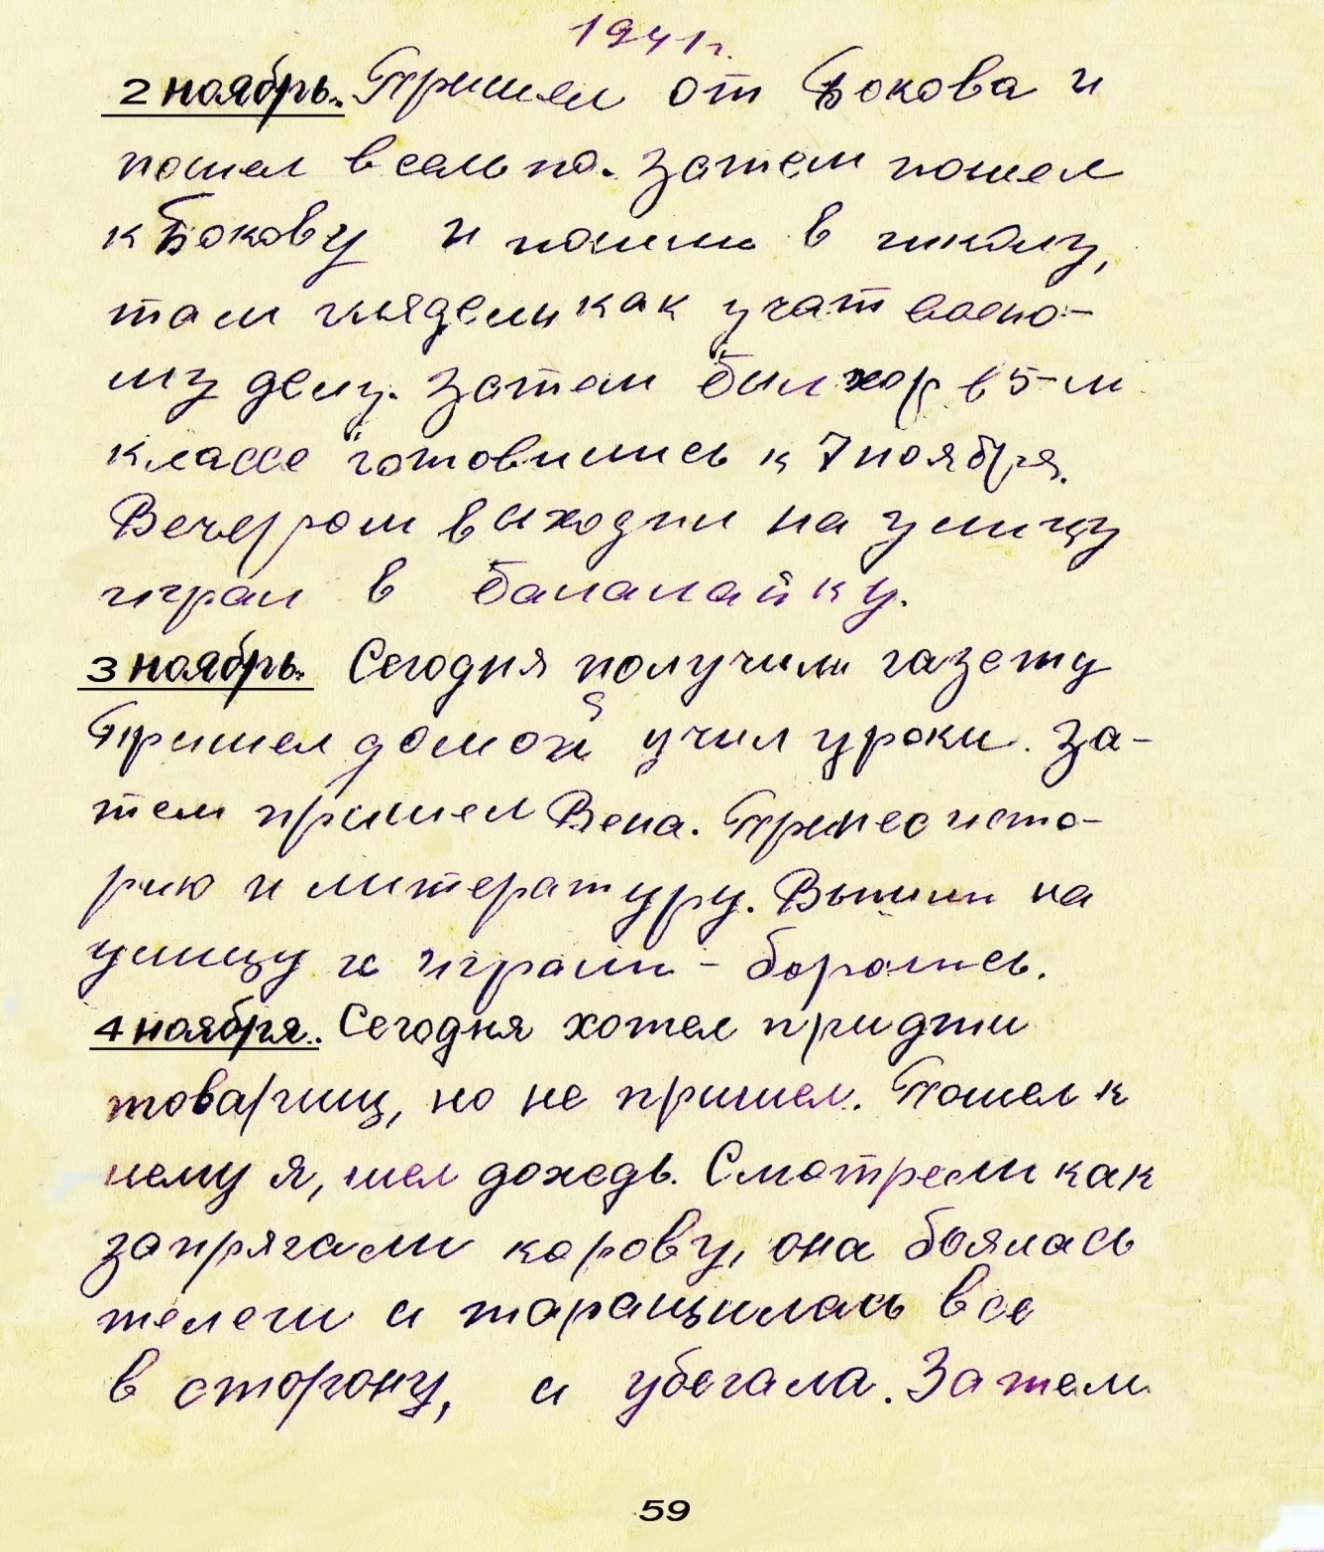 1941 г.
2 ноябрь. Пришел от Бокова и
пошел в сельпо. Затем пошел
к Бокову и пошли в школу,
там глядели как учат воено-
му делу. Затем был хор в 5-м
классе готовились к 7 ноября.
Вечером выходил на улицу
играл в балалайку.
3 ноябрь. Сегодня получили газету
Пришел домой учил уроки. За-
тем пришел Вена. Принес исто-
рию и литературу. Вышли на
улицу и играли - боролись.
4 ноября. Сегодня хотел придти
товарищ, но не пришел. Пошел к
нему я, шел дождь. Смотрели как
запрягали корову, она боялась
телеги и таращилась все
в сторону, и убегала. Затем
59